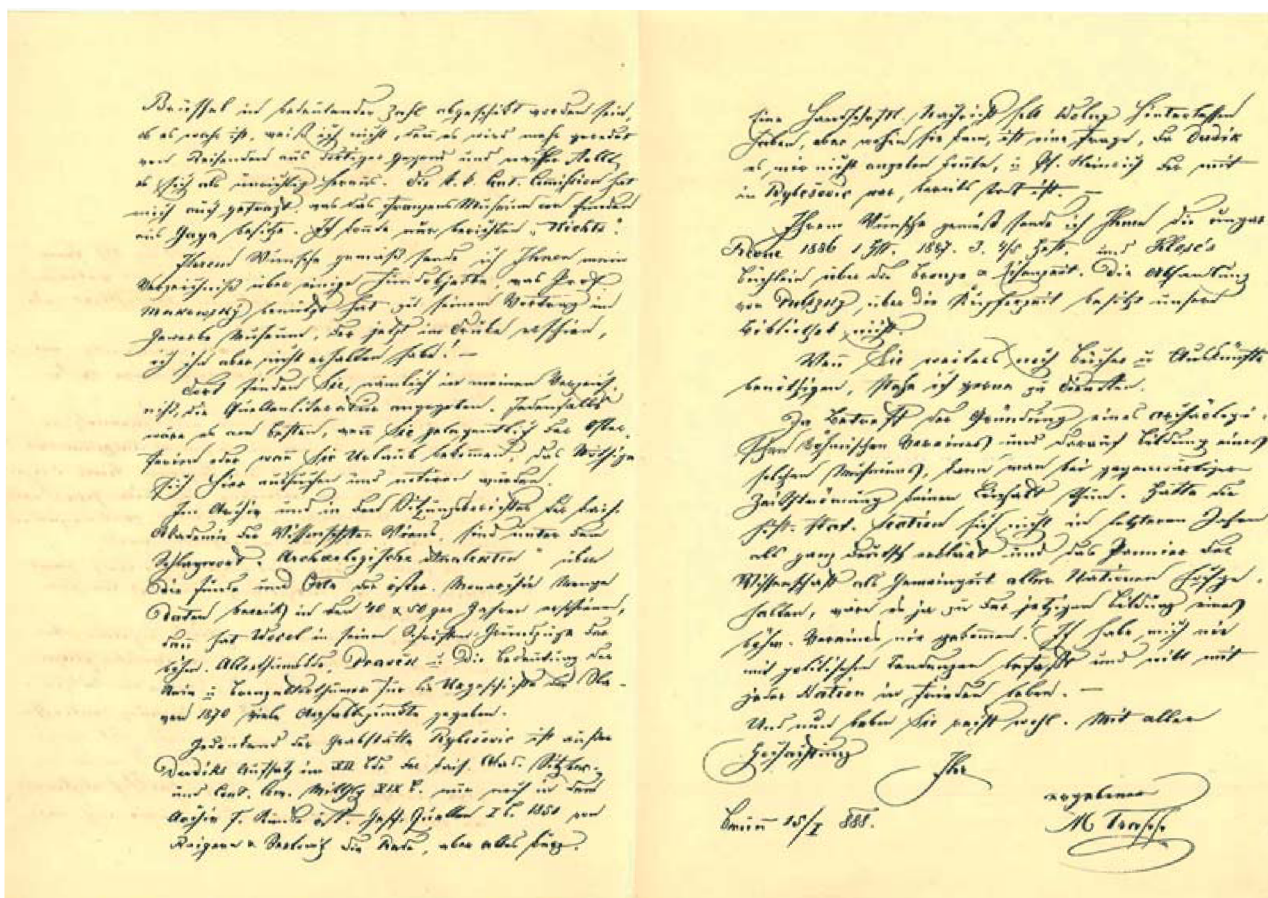 Brüssel in bedeutender Zahl abgeschickt worden sein,
ob es wahr ist, weiß ich nicht, denn es wird mehr geredet
von Reisenden aus dortiger Gegend und nachher stellt
es sich als unrichtig heraus. Die k. k. Cent. Comission hat
mich auch gefragt, was das Franzens Museum von Funden
aus Gaya besitze. Ich konnte nur berichten „Nichts“!
Ihrem Wunsche gemäß sende ich Ihnen mein
Verzeichniß über einige Fundobjecte, was Prof
Makowsky benützt hat zu seinem Vortrag im
Gewerbe Museum, der jetzt im Drucke erschien,
ich ihn aber nicht erhalten habe! —
Dort finden Sie, nämlich in meinem Verzeich-
niß, die Quellenliteratur angegeben. Jedenfalls
wäre es am besten, wenn Sie gelegentlich der Oster-
ferien oder wann Sie Urlaub bekommen, das Nöthige
sich hier aufsuchen und notiren würden.
Im Archiv und in den Sitzungsberichten der kais.
Akademie der Wissenschften Wiens, sind unter dem
Schlagwort „Archaelogische Analekten“ über
die Funde und Orte der österr. Monarchie Menge
Daten bereits in den 40 & 50ger Jahren erschienen,
dann hat Wocel in seinen Schriften: Grundzüge der
böhm. Alterthumskde, Pravěk u Die Bedeutung der
Stein u Bronzealterthümer für die Urgeschichte der Sla-
ven 1870 viele Anhaltspunkte gegeben.
Gedenkend der Grabstätte Bylešovic ist außer
Dudiks Aufsatz im XII Bde der kais. Akad. Sitzber.
und Cent. Com. Mitthlg XIX B. nur noch in dem
Archiv f. Kunde öst. Gesch. Quellen I B. 1851 von
Raigern & die Rede, aber alles kurz.
Eine Handschriftl. Nachricht soll Wolny hinterlassen
haben, aber wohin sie kam, ist eine Frage, da Dudik
es mir nicht angeben konte, u Pf. Heinrich der mit
in Bylešovic war, bereits todt ist. —
Ihrem Wunsche gemäß sende ich Ihnen die ungar
Revue 1886 1 Hft. 1887. 3. 4/5 Heft, und
Büchlein über die Bronze & Eisenzeit. Die Abhandlung
von Pulszky, über die Kupferzeit besitzt unsere
Bibliothek nicht.
Wenn Sie weiters noch Bücher u Auskünfte
benöthigen, stehe ich gerne zu Diensten.
In Betreff der Gründung eines archäologi-
schen böhmischen Vereines und darauf Bildung eines
solchen Museums, kann man bei gegenwärtiger
Zeitströmung keinen Einhalt thun. Hätte die
hist. stat. Section sich nicht in letzteren Jahren
als ganz deutsch erklärt und das Pannier der
Wissenschaft als Gemeingut aller Nationen hochge-
halten, wäre es ja zu der jetzigen Bildung eines
böhm. Vereines nie gekommen. Ich habe mich nie
mit politischen Tendenzen befaßt und will mit
jeder Nation in Frieden leben. —
Und nun leben Sie recht wohl. Mit aller
Hochachtung
Ihr
ergebener
Brünn 15/I 888.
M Trapp